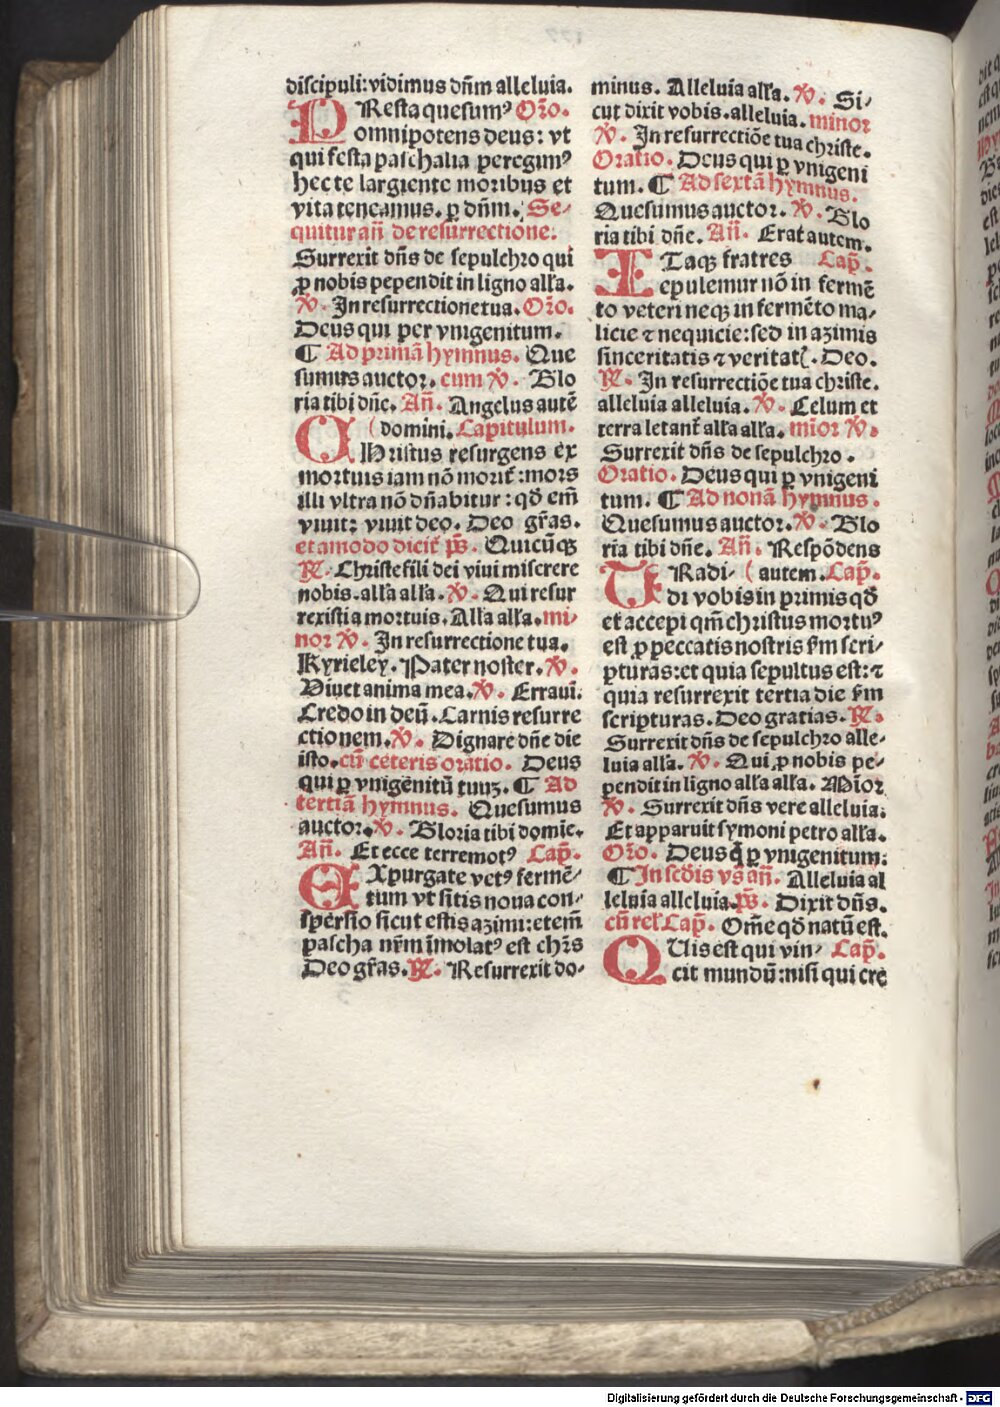 discipuli: vidimus dñm alleluia.
PResta quesumꝰ Oꝛo.
omnipotens deus: vt
qui festa paschalia peregimꝰ
hec te largiente moribus et
vita teneamus. ꝑ dñm. Se⸗
quitur añ de resurrectione.
Surrexit dñs de sepulchꝛo qui
ꝓ nobis pependit in ligno alľa.
℣. In resurrectione tua. Oꝛo.
Deus qui per vnigenitum.
¶ Ad primā hymnus. Que
sumus auctoꝛ. cum ℣. Glo
ria tibi dñe. Añ. Angelus autē
( domini. Capitulum.
CHristus resurgens ex
moꝛtuis iam nō moꝛit̄: moꝛs
illi vltra nō dñabitur: qð em̄
viuit: viuit deo. Deo gr̄as.
et amodo dicit̄ ps̄. Quicūqꝫ
℟. Christe fili dei viui miserere
nobis. alľa alľa. ℣. Qui resur
rexisti a moꝛtuis. Alľa alľa. mi⸗
noꝛ ℣. In resurrectione tua.
Kyrieley. Pater noster. ℣.
Viuet anima mea. ℣. Erraui.
Credo in deū. Carnis resurre
ctionem. ℣. Dignare dñe die
isto. cū ceteris oratio. Deus
qui ꝑ vnigenitū tuuꝫ. ¶ Ad
tertiā hymnus. Quesumus
auctoꝛ. ℣. Gloria tibi domīe.
Añ. Et ecce terremotꝰ Cap̄.
EXpurgate vetꝰ fermē⸗
tum vt sitis noua con⸗
spersio sicut estis azimi: etem̄
pascha nr̄m īmolatꝰ est chr̄s
Deo gr̄as. ℟. Resurrexit do⸗
minus. Alleluia alľa. ℣. Si⸗
cut dixit vobis. alleluia. minoꝛ
℣. In resurrectiōe tua christe.
Oratio. Deus qui ꝑ vnigeni
tum. ¶ Ad sextā hymnus.
Quesumus auctoꝛ. ℣. Glo
ria tibi dñe. Añ. Erat autem.
ITaqꝫ fratres Cap̄.
epulemur nō in fermē
to veteri neqꝫ in fermēto ma⸗
licie ⁊ nequicie: sed in azimis
sinceritatis ⁊ veritatꝭ. Deo.
℟. In resurrectiōe tua christe.
alleluia alleluia. ℣. Celum et
terra letant̄ alľa alľa. mīoꝛ ℣.
Surrexit dñs de sepulchꝛo.
Oratio. Deus qui ꝑ vnigeni
tum. ¶ Ad nonā hymnus.
Quesumus auctoꝛ. ℣. Glo
ria tibi dñe. Añ. Respōdens
TRadi⸗ ( autem. Cap̄.
di vobis in primis qð
et accepi qm̄ christus moꝛtuꝰ
est ꝓ peccatis nostris ẜm scri⸗
pturas: et quia sepultus est: ⁊
quia resurrexit tertia die ẜm
scripturas. Deo gratias. ℟.
Surrexit dñs de sepulchꝛo alle⸗
luia alľa. ℣. Qui ꝓ nobis pe⸗
pendit in ligno alľa alľa. Mīoꝛ
℣. Surrexit dñs vere alleluia:
Et apparuit symoni petro alľa.
Oꝛo. Deus q̇ ꝑ vnigenitum:
¶ In scðis vs̄ añ. Alleluia al
leluia alleluia. ps̄. Dixit dñs.
cū reľ Cap̄. Om̄e qð natū est.
QUis est qui vin⸗ Cap̄.
cit mundū: nisi qui cre
Digitalisierung gefördert durch die Deutsche Forschungsgemeinschaft - DFG